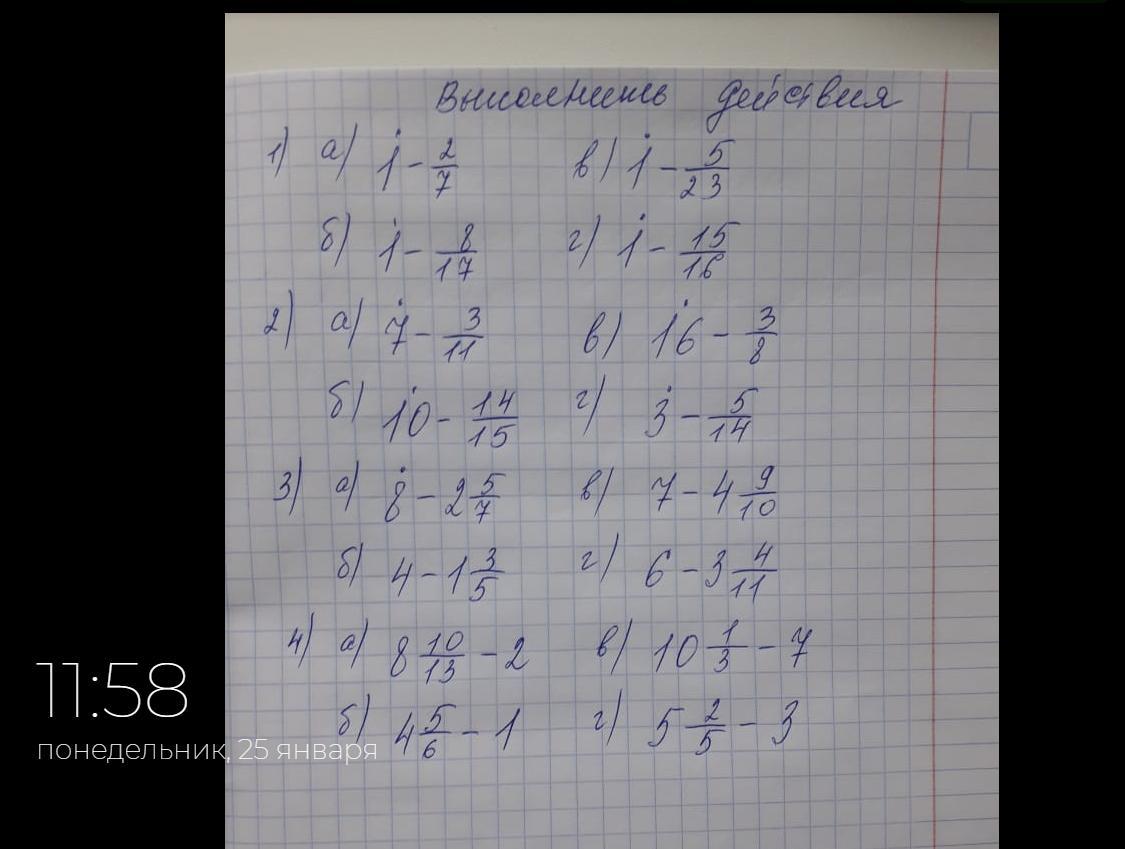 Выполнить действия
1) а) 1 - 2/7 в) 1 - 5/23
б) 1 - 8/17 г) 1 - 15/16
2) а) 7 - 3/11 в) 16 - 3/8
б) 10 - 14/15 г) 3 - 5/14
3) а) 8 - 2 5/7 в) 7 - 4 9/10
б) 4 - 1 3/5 г) 6 - 3 4/11
4) а) 8 10/13 - 2 в) 10 1/3 - 7
б) 4 5/6 - 1 г) 5 2/5 - 3
11:58
понедельник, 25 января